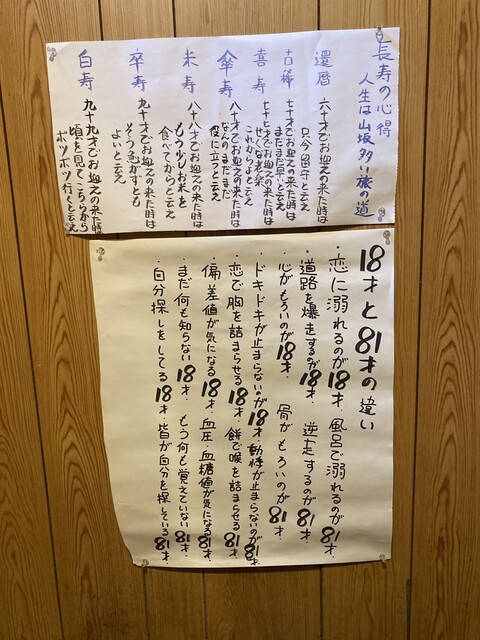 長寿の心得
人生は山坂多い旅の道
還暦
六十才でお迎えの来た時は
只今留守と云え
古稀
七十才でお迎えの来た時は
まだまだ早いと云え
喜寿
七十七才でお迎えの来た時は
せくな老楽
これからよと云え
傘寿
八十才でお迎えの来た時は
なんのまだまだ
役に立つと云え
米寿
八十八才でお迎えの来た時は
もう少しお米を
食べてからと云え
卒寿
九十才でお迎えの来た時は
そう急がずとも
よいと云え
白寿
九十九才でお迎えの来た時は
頃を見てこちらから
ボツボツ行くと云え
18才と81才の違い
・恋に溺れるのが18才、風呂で溺れるのが81才、
・道路を爆走するのが18才、逆走するのが81才、
・心がもろいのが18才、骨がもろいのが81才、
・ドキドキが止まらないのが18才、動悸が止まらないのが81才、
・恋で胸を詰まらせる18才、餅で喉を詰まらせる81才、
・偏差値が気になる18才、血圧・血糖値が気になる81才、
・まだ何も知らない18才、もう何も覚えていない81才、
・自分探しをしてる18才、皆が自分を探している81才、